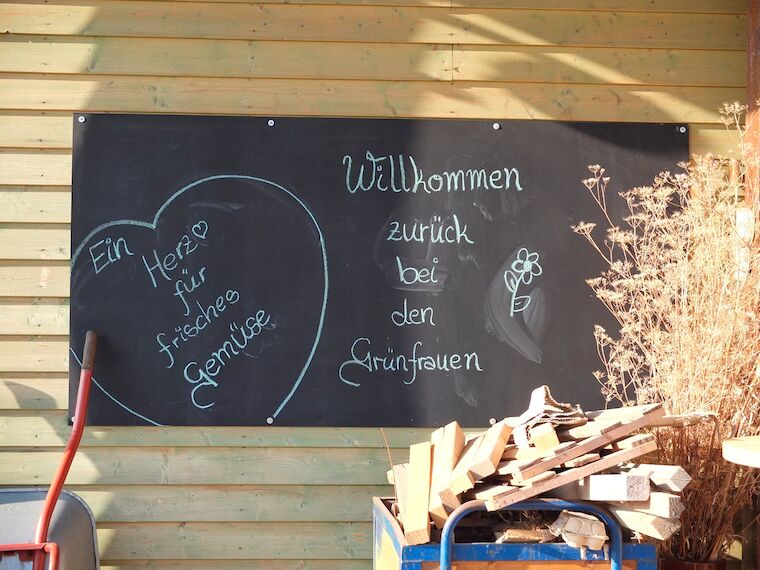 Ein
Herz
für
frisches
Gemüse
Willkommen
zurück
bei
den
Grünfrauen